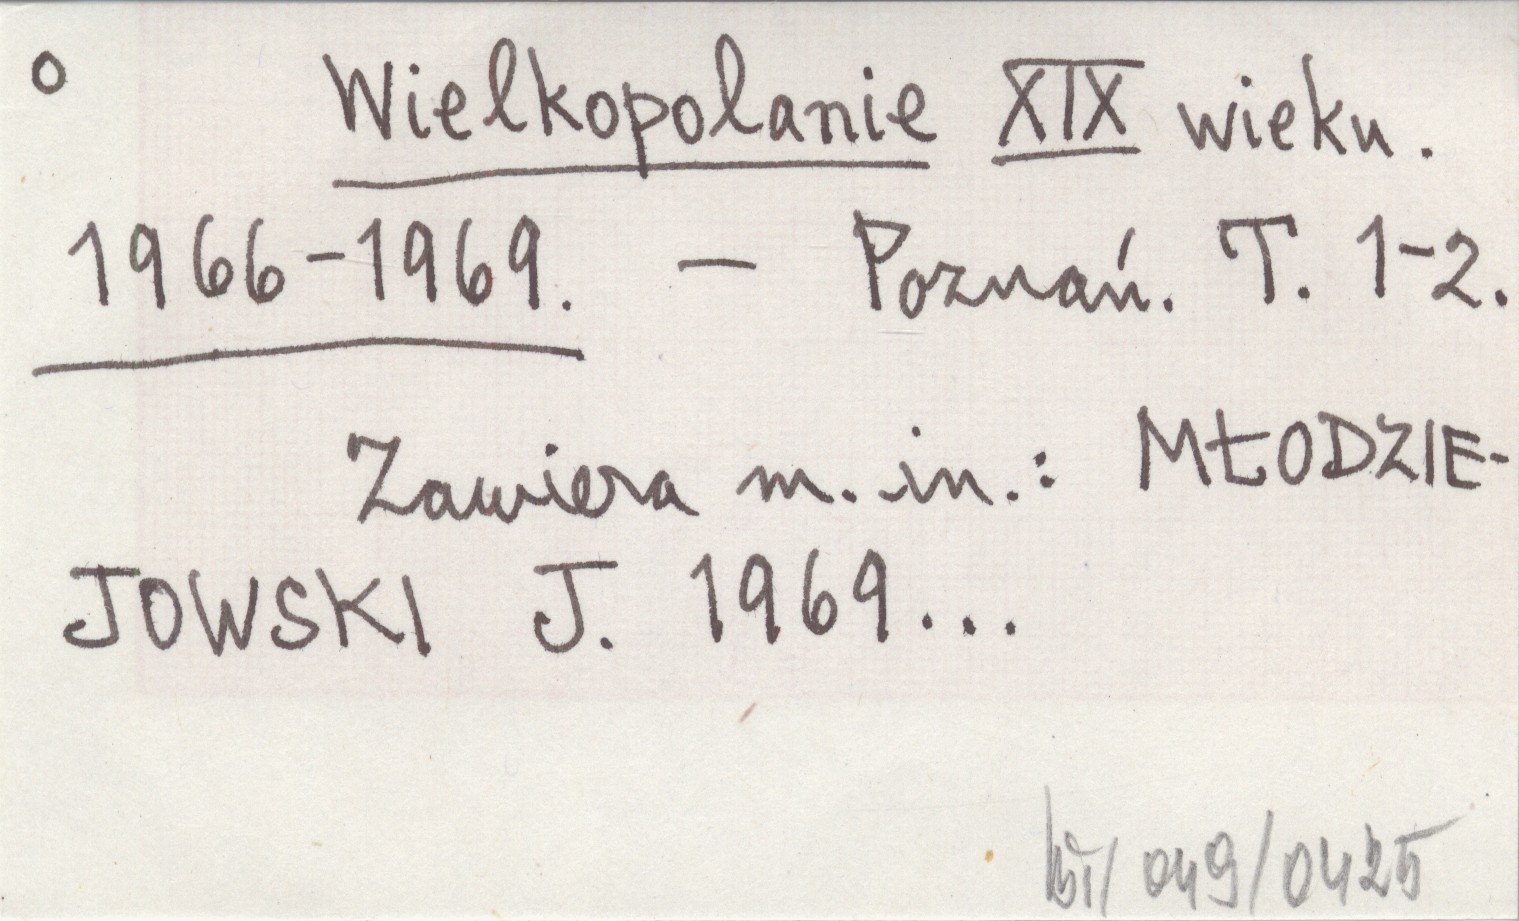 o Wielkopolanie XIX wieku.
1966-1969. — Poznań. T. 1-2.
Zawiera m. in.: MŁODZIE-
JOWSKI J. 1969...
/049/0425